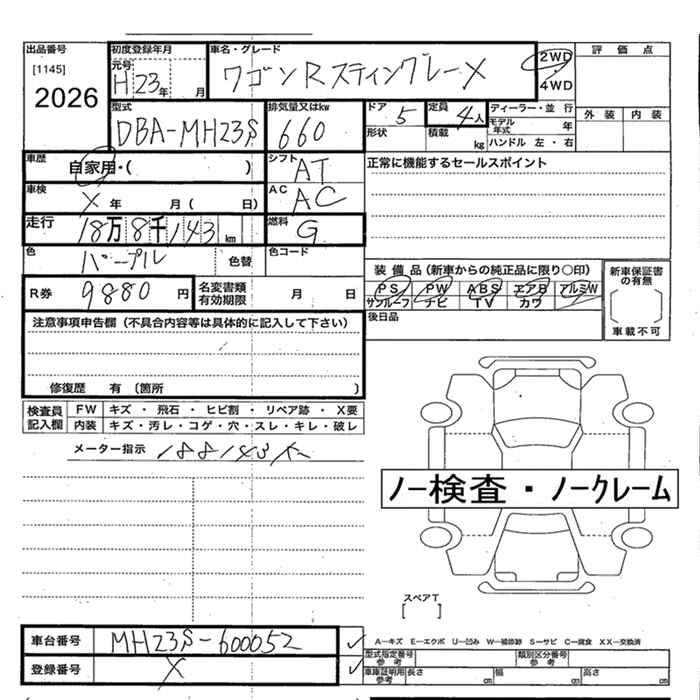 出品番号 初度登録年月 車名・グレード 2WD 評価点
[1145] 元号 H23年 月 ワゴンR スティングレーX 4WD
2026 外装 内装
型式 排気量又はkw ドア 5 定員 4人 ディーラー・並行
DBA-MH23S 660 形状 積載 kg モデル年式 年
ハンドル 左・右
車歴 自家用・( ) シフト AT 正常に機能するセールスポイント
車検 X 年 月( 日) AC AC
走行 18万8千143 km 燃料 G
色 パープル 色替 色コード
装備品(新車からの純正品に限り○印) 新車保証書の有無
R券 9880 円 名変書類有効期限 月 日 PS PW ABS エアB アルミW
サンルーフ ナビ TV カワ
注意事項申告欄(不具合内容等は具体的に記入して下さい) 後日品 車載不可
修復歴 有(箇所 )
検査員記入欄 FW キズ・飛石・ヒビ割・リペア跡・X要
内装 キズ・汚レ・コゲ・穴・スレ・キレ・破レ
メーター指示 188143K
ノー検査・ノークレーム
スペアT
[ ]
車台番号 MH23S-600052 ✓ A-キズ E-エクボ U-凹み W-補修跡 S-サビ C-腐食 XX-交換済
型式指定番号 参考 類別区分番号 参考
登録番号 X ✓ 車庫証明用 参考 長さ cm 幅 cm 高さ cm